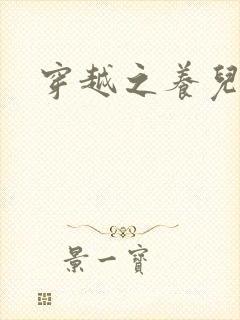 穿越之養兒
景一寶